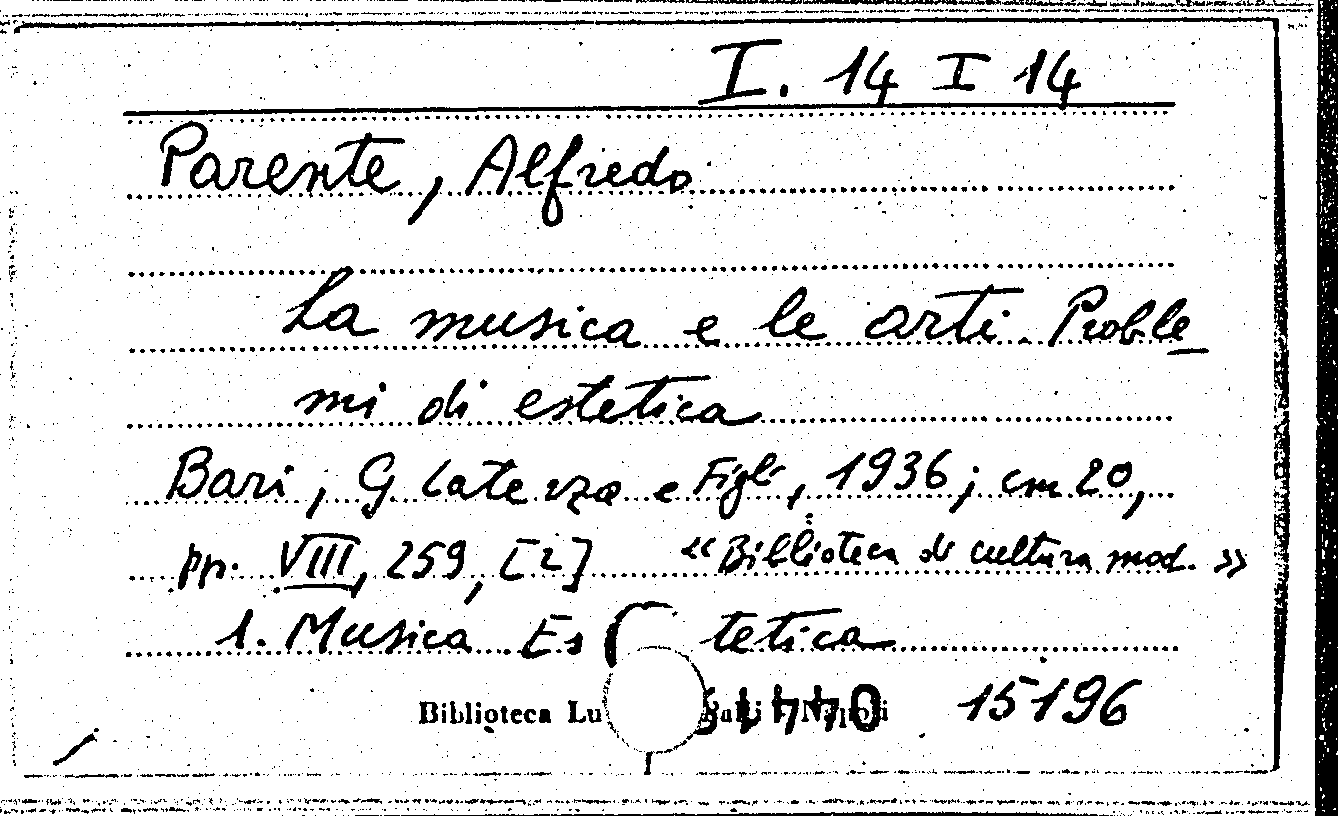 I. 14 I 14
Parente, Alfredo
La musica e le arti. Proble_
mi di estetica
Bari, G Laterza e Figli, 1936; cm 20,
pp. VIII, 259, [2] «Biblioteca di cultura mod.»
1. Musica Es tetica
Biblioteca Lu 15196